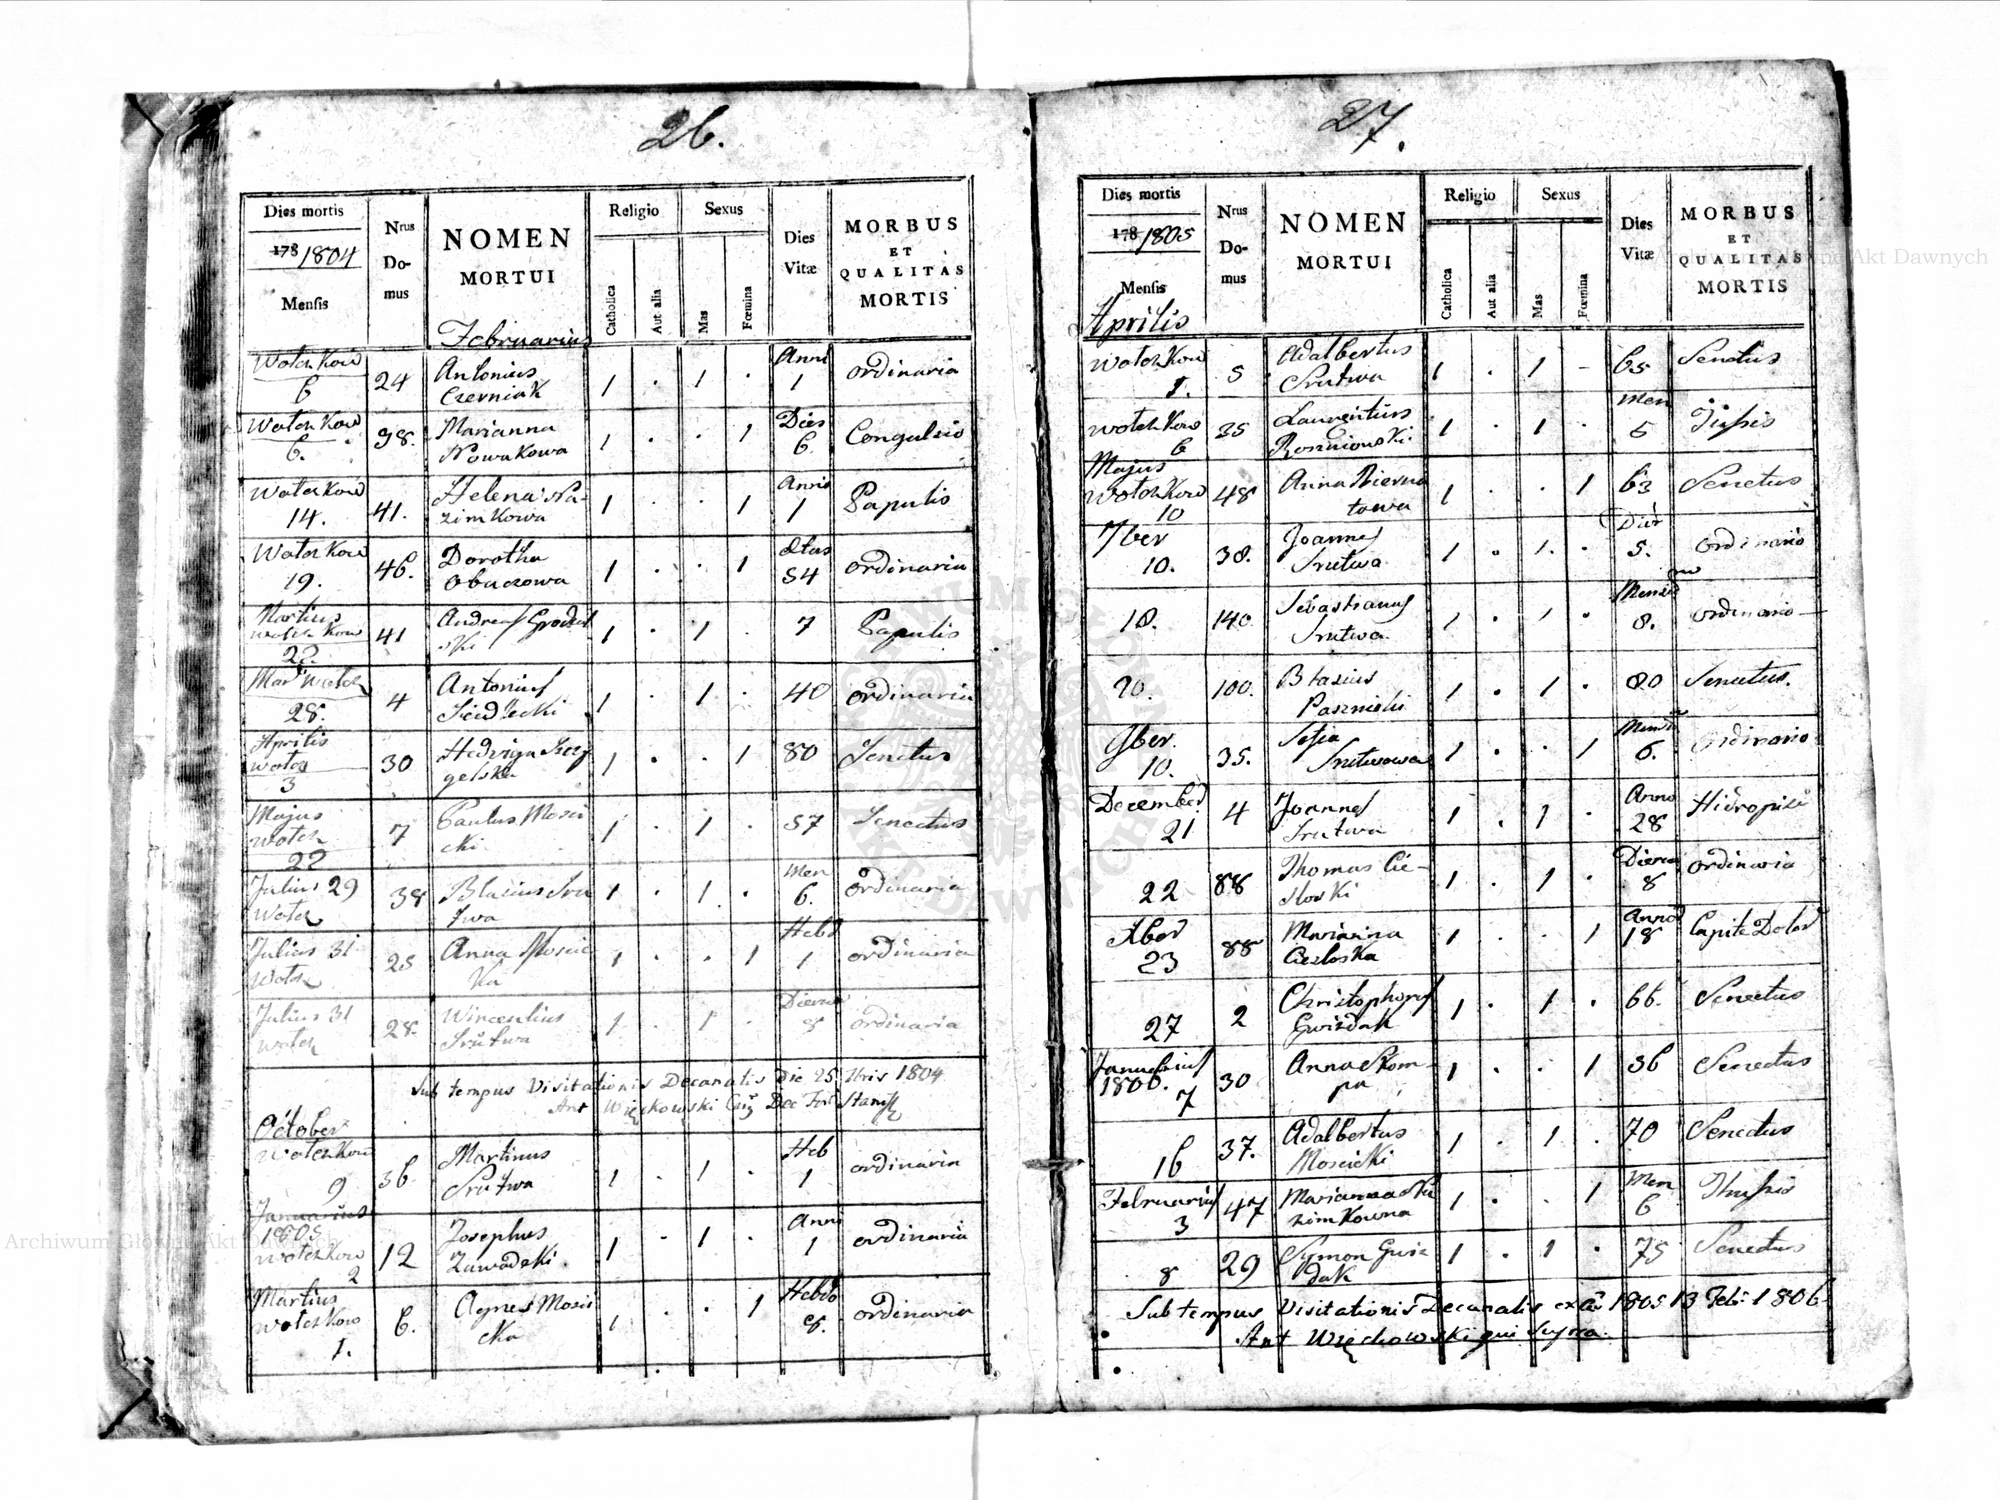 26.
Dies mortis
178 1804
Mensis
Nrus
Do-
mus
NOMEN
MORTUI
Februarius
Religio
Catholica
Aut alia
Sexus
Mas
Fœmina
Dies
Vitæ
MORBUS
ET
QUALITAS
MORTIS
Wolczkow 6 24 Antonius Czerniak 1 . 1 . Anni 1 ordinaria
Wolczkow 6. 98. Marianna Nowakowa 1 . . 1 Dies 6. Congulsio
Wolczkow 14. 41. Helena Nazimkowa 1 . . 1 Annis 1 Papulis
Wolczkow 19. 46. Dorotha 1 . . 1 54 ordinaria
Martius Wolczkow 22. 41 Andreas 1 . 1 . 7 Papulis
28. 4 Antonius Siedlecki 1 . 1 . 40 ordinaria
Aprilis 3 30 Hedviga 1 . . 1 80 Senectus
Majus 22 7 Paulus Moscicki 1 . 1 . 57 Senectus
Julius 29 38 Blasius Srutwa 1 . 1 . Men 6. ordinaria
Julius 31 25 Anna Moscicka 1 . . 1 Hebd 1 ordinaria
Julius 31 28. Wincentius Srutwa 1 . 1 . 8 ordinaria
Sub tempus Visitationis Decanalis Die 25 1804
October Wolczkow 9 36 Martinus Srutwa 1 . 1 . Heb 1 ordinaria
Januarius 1805 Wolczkow 2 12 Josephus Zawadzki 1 . 1 . Anni 1 ordinaria
Martius Wolczkow 1. 6. Agnes Moscicka 1 . . 1 Hebdo 8. ordinaria
27.
Dies mortis
178 1805
Mensis
Aprilis
Nrus
Do-
mus
NOMEN
MORTUI
Religio
Catholica
Aut alia
Sexus
Mas
Fœmina
Dies
Vitæ
MORBUS
ET
QUALITAS
MORTIS
Wolczkow 1. 5 Adalbertus Srutwa 1 . 1 - 65 Senectus
Wolczkow 6 35 Laurentius 1 . 1 . Men 5
Majus Wolczkow 10 48 Anna Biernatowa 1 . . 1 63 Senectus
7ber 10. 38. Joannes Srutwa 1 . 1 . 5. ordinario
18. 140 Sebastianus Srutwa 1 . 1 . 8. ordinario
20. 100. Blasius 1 . 1 . 80 Senectus.
9ber. 10. 35. Srutwowa 1 . . 1 6. ordinario
December 21 4 Joannes Srutwa 1 . 1 . Anno 28
22 88 Thomas Cie- 1 . 1 . 8 ordinaria
Xber 23 88 Marianna 1 . . 1 18 Capite Dolor
27 2 Christophorus Gwizdak 1 . 1 . 66. Senectus
1806. 7 30 Anna Pom- pa 1 . . 1 36 Senectus
16 37. Adalbertus Moscicki 1 . 1 . 70 Senectus
Februarius 3 47 Marianna 1 . . 1 Men 6
8 29 Symon Gwizdak 1 . 1 . 75 Senectus
Sub tempus Visitationis Decanalis 1805 13 Feb: 1806
Archiwum Główne Akt Dawnych
Archiwum Główne Akt Dawnych